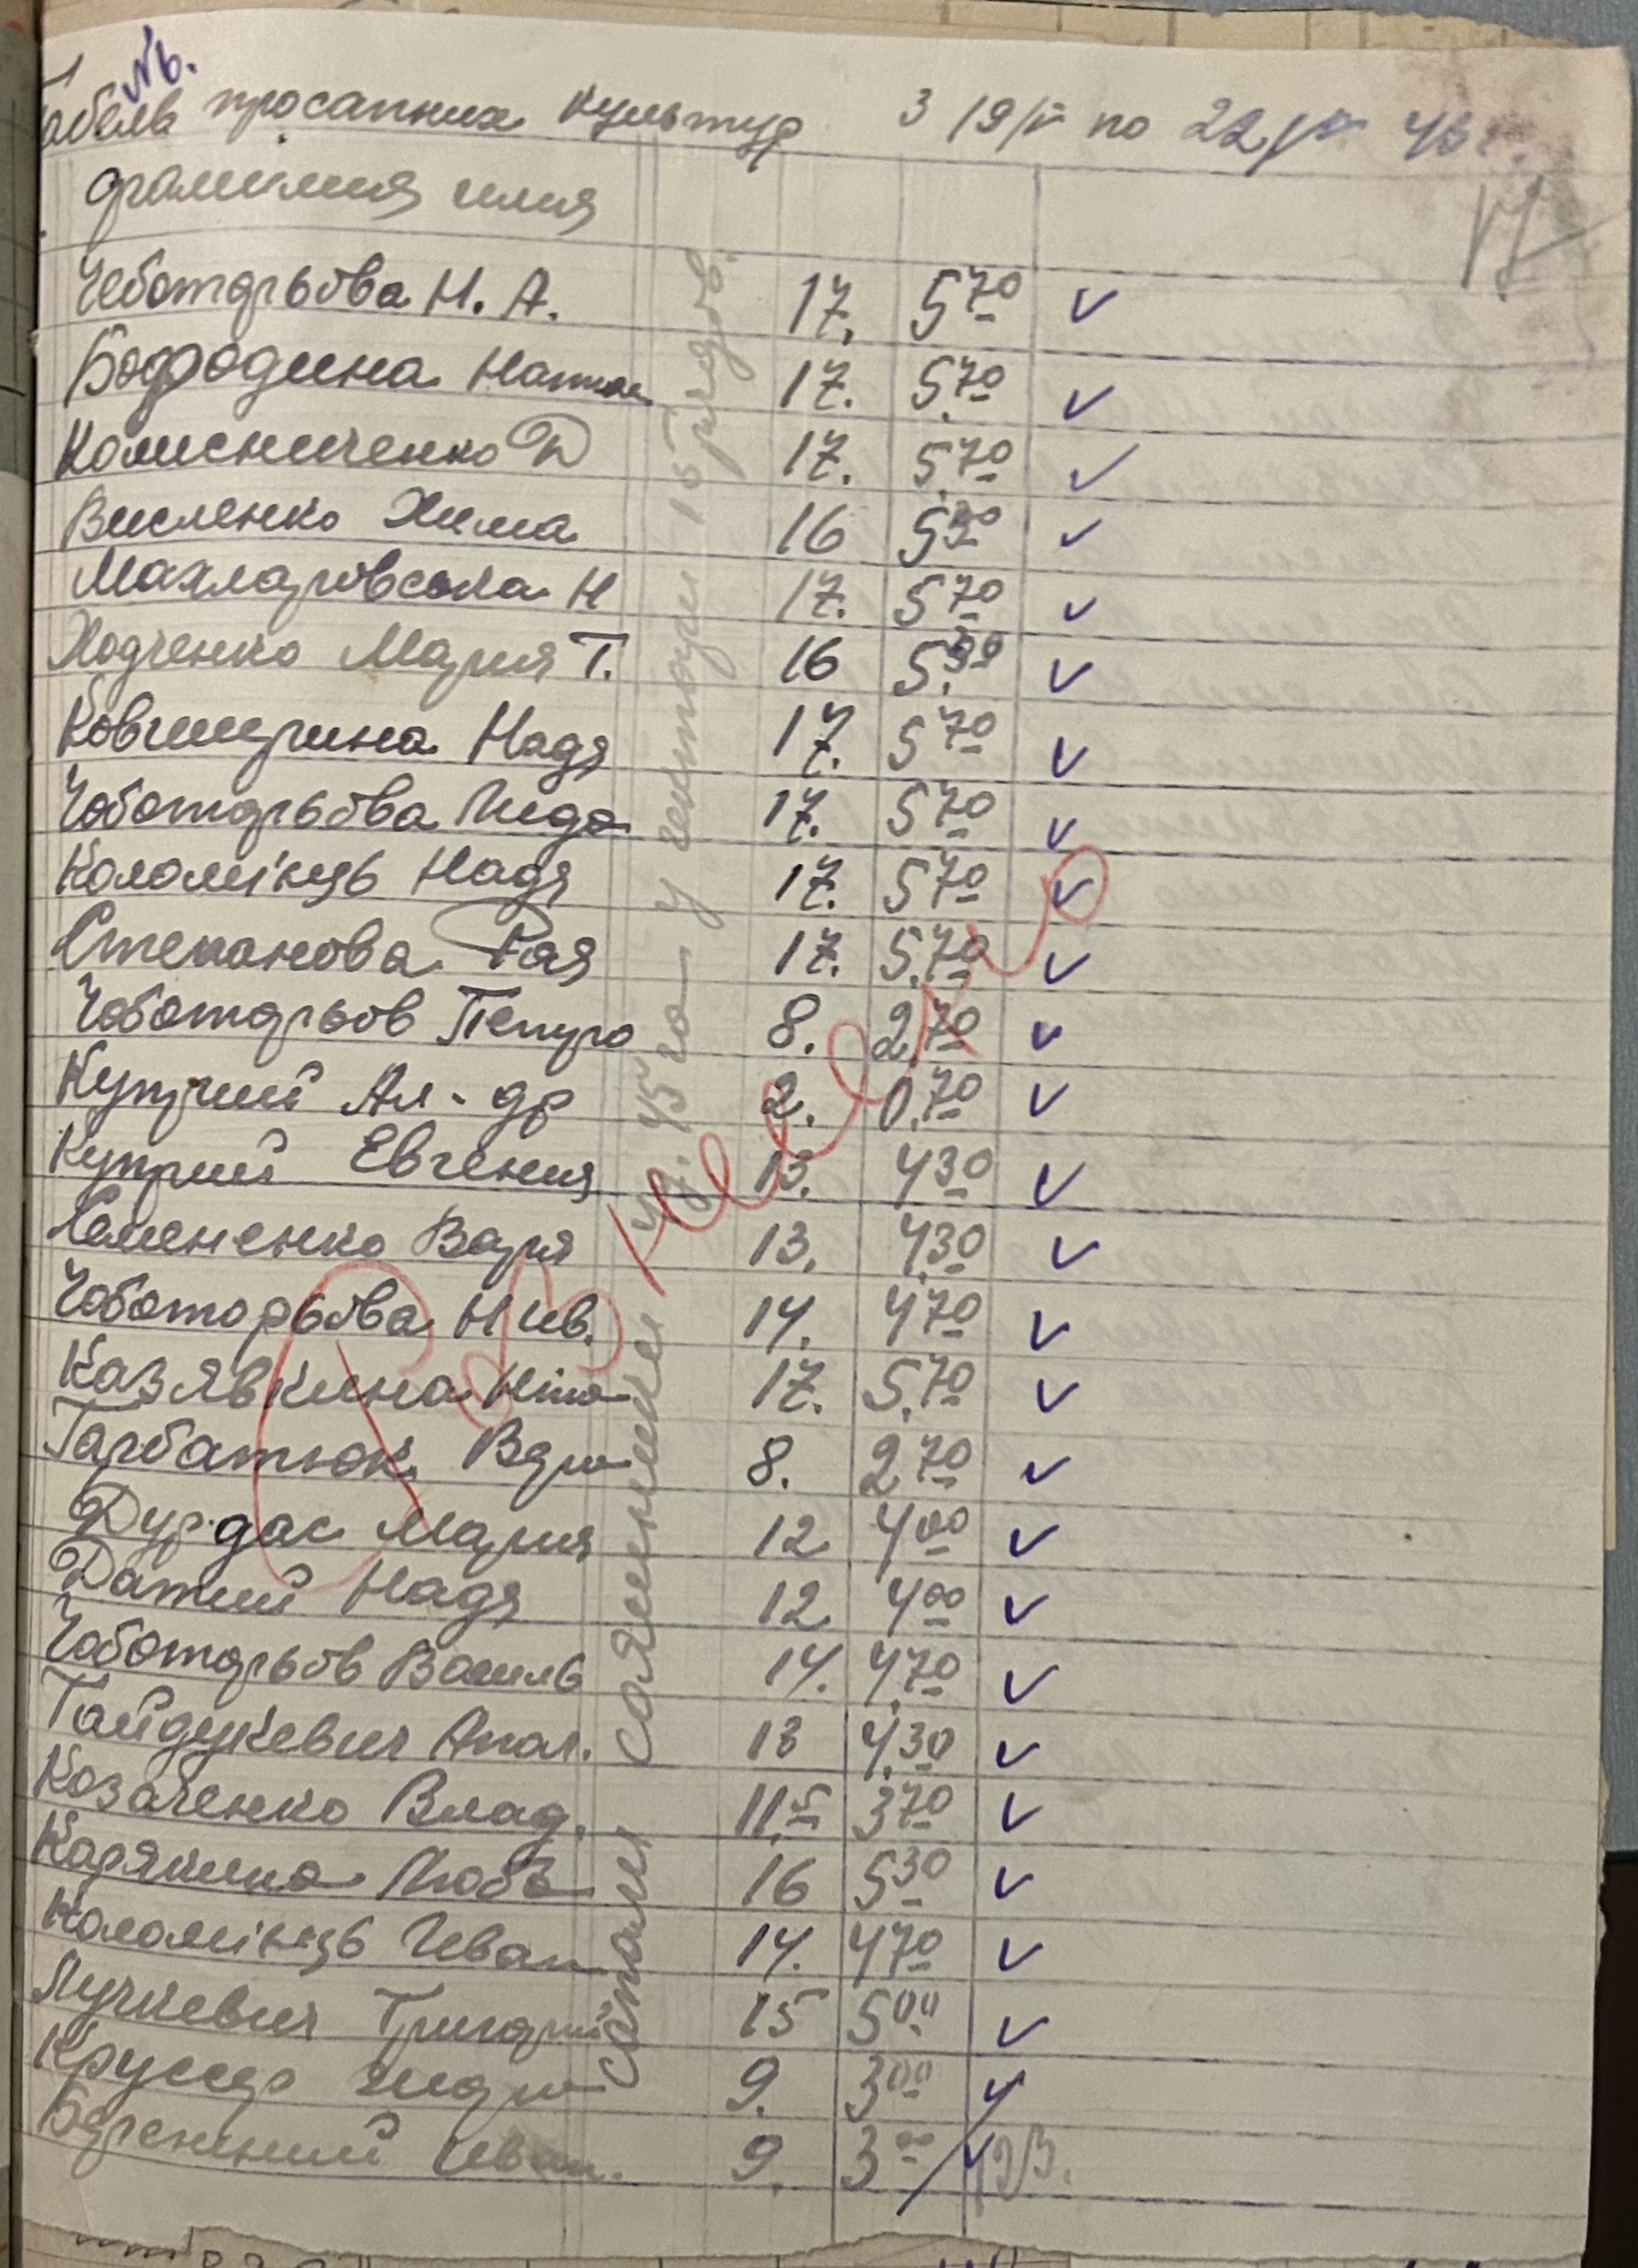 №.
Табель просапних культур з 19/V по 22/V 43 г.
фамилия имия
17
Чеботарьова Н. А. 17. 5 70 ✓
Бородина Натал 17. 5.70 ✓
Колисниченко 17. 5.70 ✓
Висленко Хима 16 ✓
Махларовська Н 17. 5 70 ✓
Ходченко Мария Т. 16 ✓
Надя 17. 5 70 ✓
Чоботарьова Лида 17. 5 70 ✓
Коломієць Надя 17. 5 70 ✓
Степанова Рая 17. 5.70 ✓
Чоботарьов Петро 8. 2.70 ✓
Куприй Ал-др 2. 0.70 ✓
Куприй Евгения 13. 4 30 ✓
Семененко Варя 13. 4.30 ✓
Чоботарьова Н ив. 14. 4.70 ✓
Козявкина Ніна 17. 5.70 ✓
Гарбатюк Вера 8. 2 70 ✓
Дурдас Мария 12 4 00 ✓
Датий Надя 12. 4 00 ✓
Чоботарьов Василь 14. 4.70 ✓
Гайдукевич Апол. 13 4.30 ✓
Козаченко Влад. 11.5 3 70 ✓
Карякина Люба 16 5 30 ✓
Коломієць Иван 14. 4 70 ✓
Лучкевич Григорий 15 5 00 ✓
9. 3 00 ✓
Иван. 9. 3 00 ✓
сапали соняшники 45 га у гектари 15 рядов.